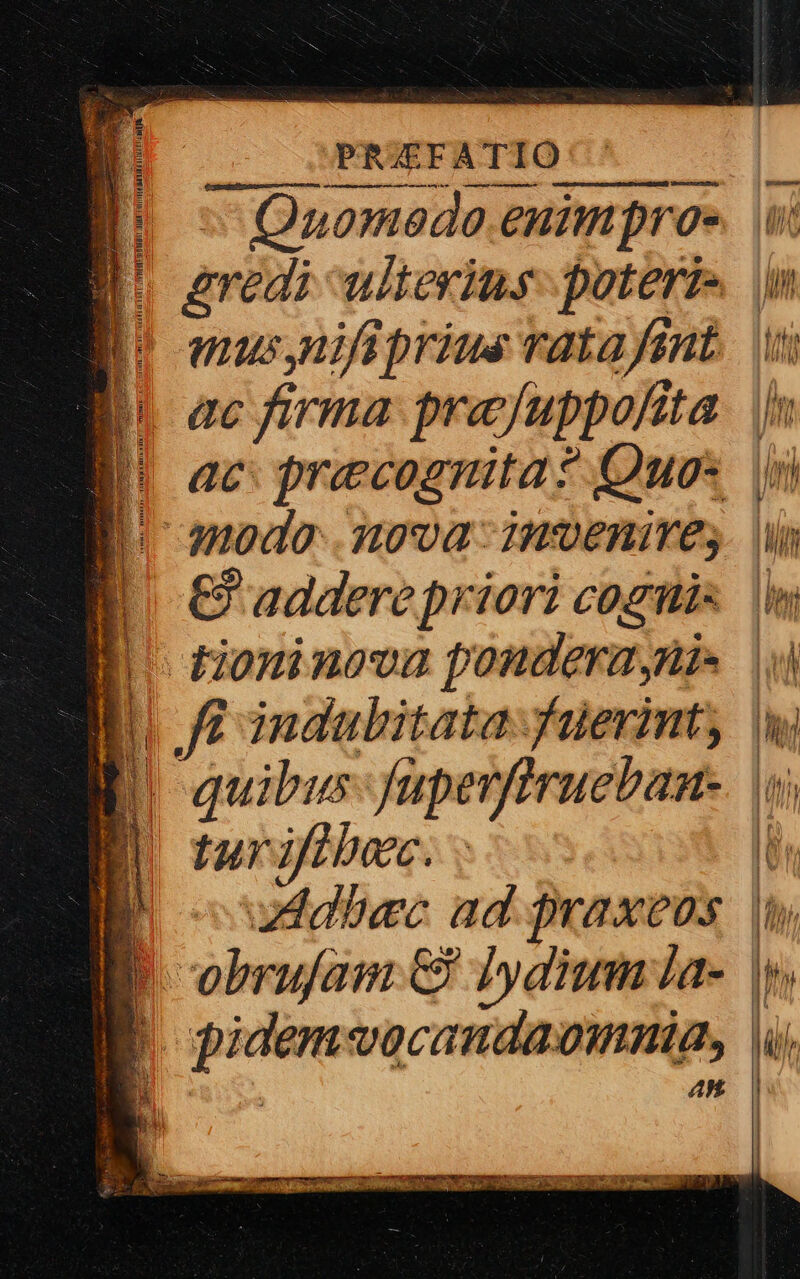 PRÆFATIO
Quomodo enim pro-
gredi ulterius poteri-
mus, niſi prius rata ſint
ac firma præſuppoſita
ac præcognita? Quo-
modo nova invenire,
& addere priori cogni-
tioni nova pondera, ni-
ſi indubitata fuerint,
quibus ſuperſtrueban-
tur iſthæc.
Adhæc ad praxeos
obruſam & lydium la-
pidem vocanda omnia,
an